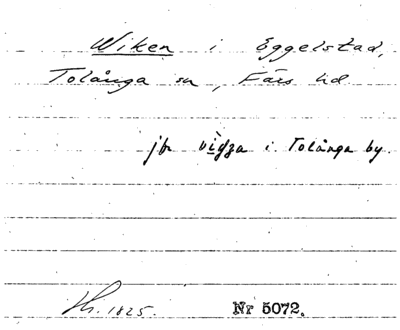 Wiken i Eggelstad,
Tolånga sn, Färs hd
jfr vigza i Tolånga by.
1825. Nr 5072.